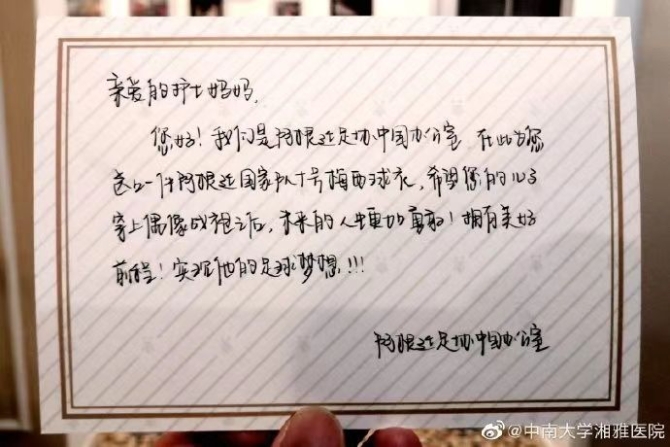 亲爱的护士妈妈,
您好！我们是阿根廷足协中国办公室 在此为您
送上一件阿根廷国家队十号梅西球衣，希望您的儿子
穿上偶像战袍之后，未来的人生更加勇敢！拥有美好
前程！实现他的足球梦想！！！
阿根廷足协中国办公室
@中南大学湘雅医院